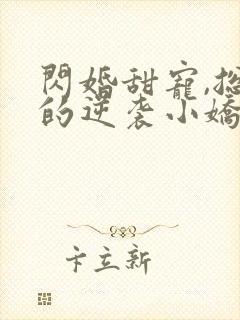 閃婚甜寵,總
的逆袭小嬌
卞立新